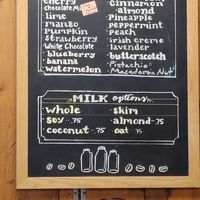 cherry
chocolate M
lime
mango
Pumpkin
strawberry
White Chocolate
blueberry
banana
watermelon
cinnamon
almond
Pineapple
peppermint
peach
irish creme
lavender
butterscotch
Pistachio
Macadamia Nut
MILK options
whole
soy .75
coconut .75
skim
almond .75
oat .75